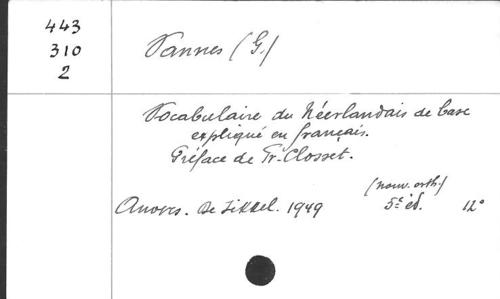 443
310
2
Vannes (G.)
Vocabulaire du Néerlandais de base
expliqué en français.
Préface de Fr. Closset.
(nouv. orth.)
Anvers. De Sikkel. 1949 5e éd. 12°